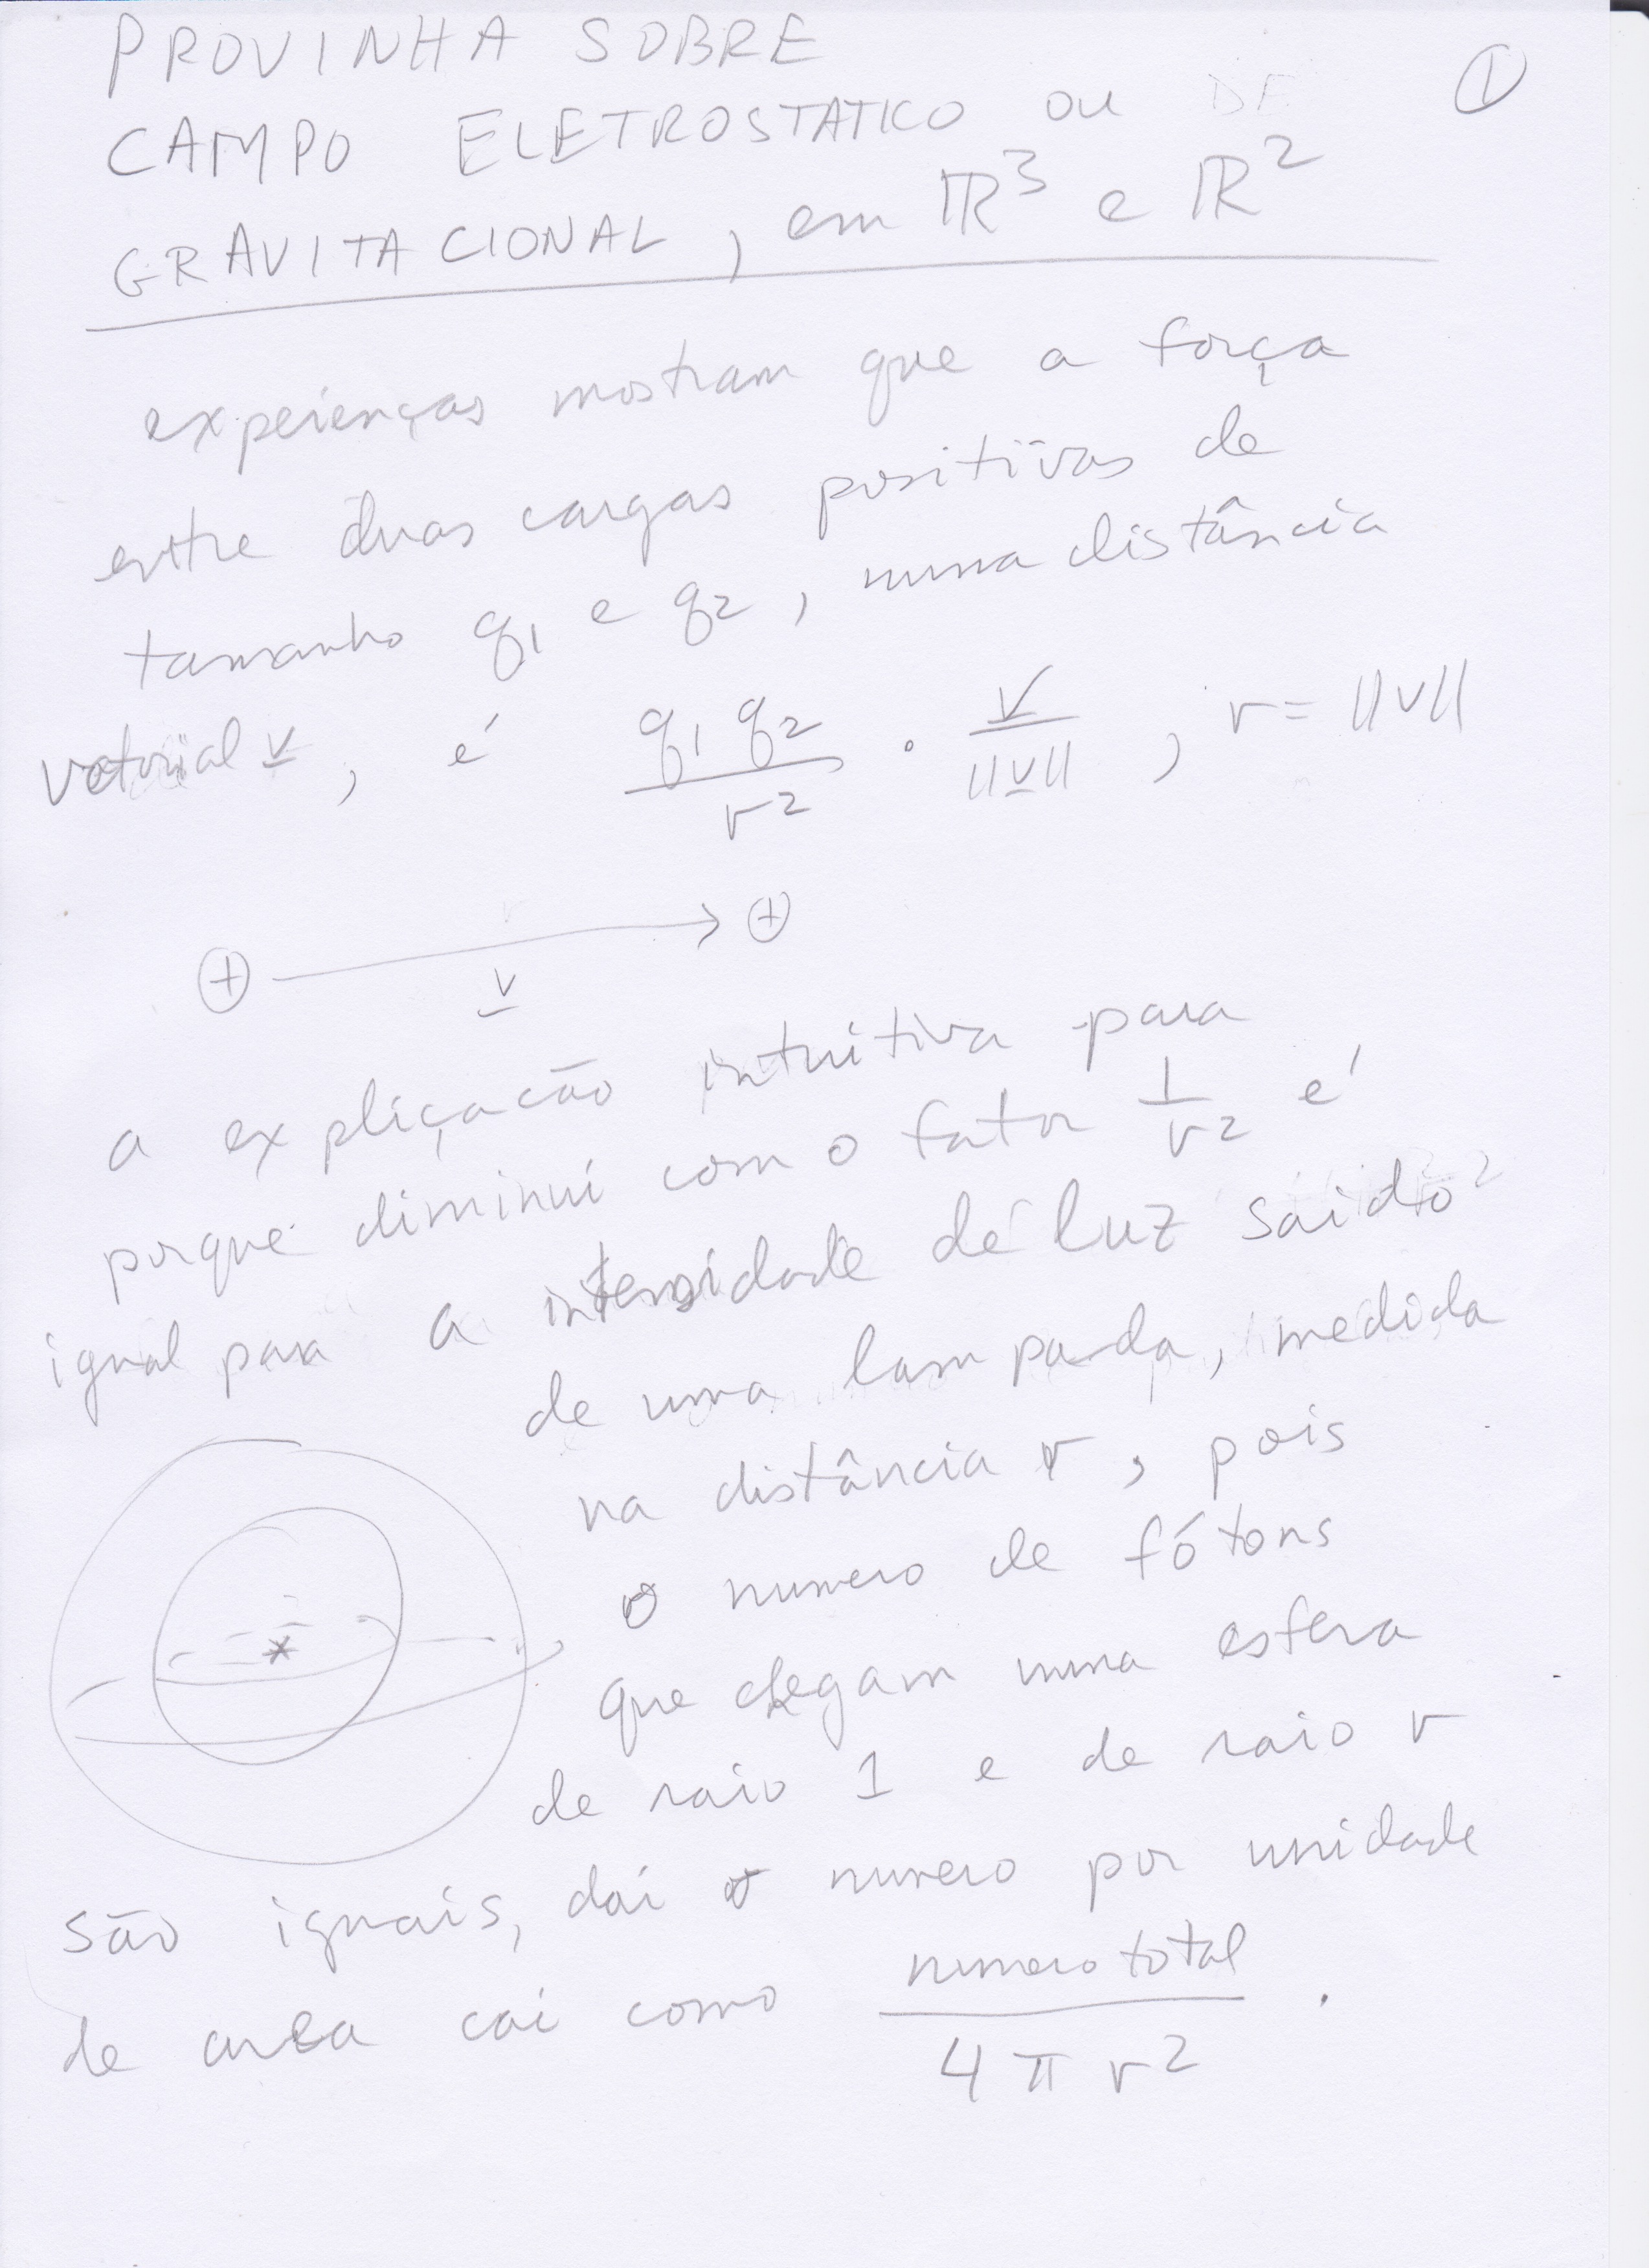 PROVINHA SOBRE
CAMPO ELETROSTATICO OU DE
①
GRAVITACIONAL, em ℝ³ e ℝ²
experienças mostram que a força
entre duas cargas positivas de
tamanho q₁ e q₂, numa distância
vetorial v, é q₁ q₂ / r² · v / ||v||, r = ||v||
+ → +
v
a explicação intuitiva para
porque diminui com o fator 1/r² é
igual para a intensidade de luz saido
de uma lampada, medida
na distância r, pois
o numero de fótons
que chegam numa esfera
de raio 1 e de raio r
são iguais, daí o numero por unidade
de area cai como numero total / 4πr².